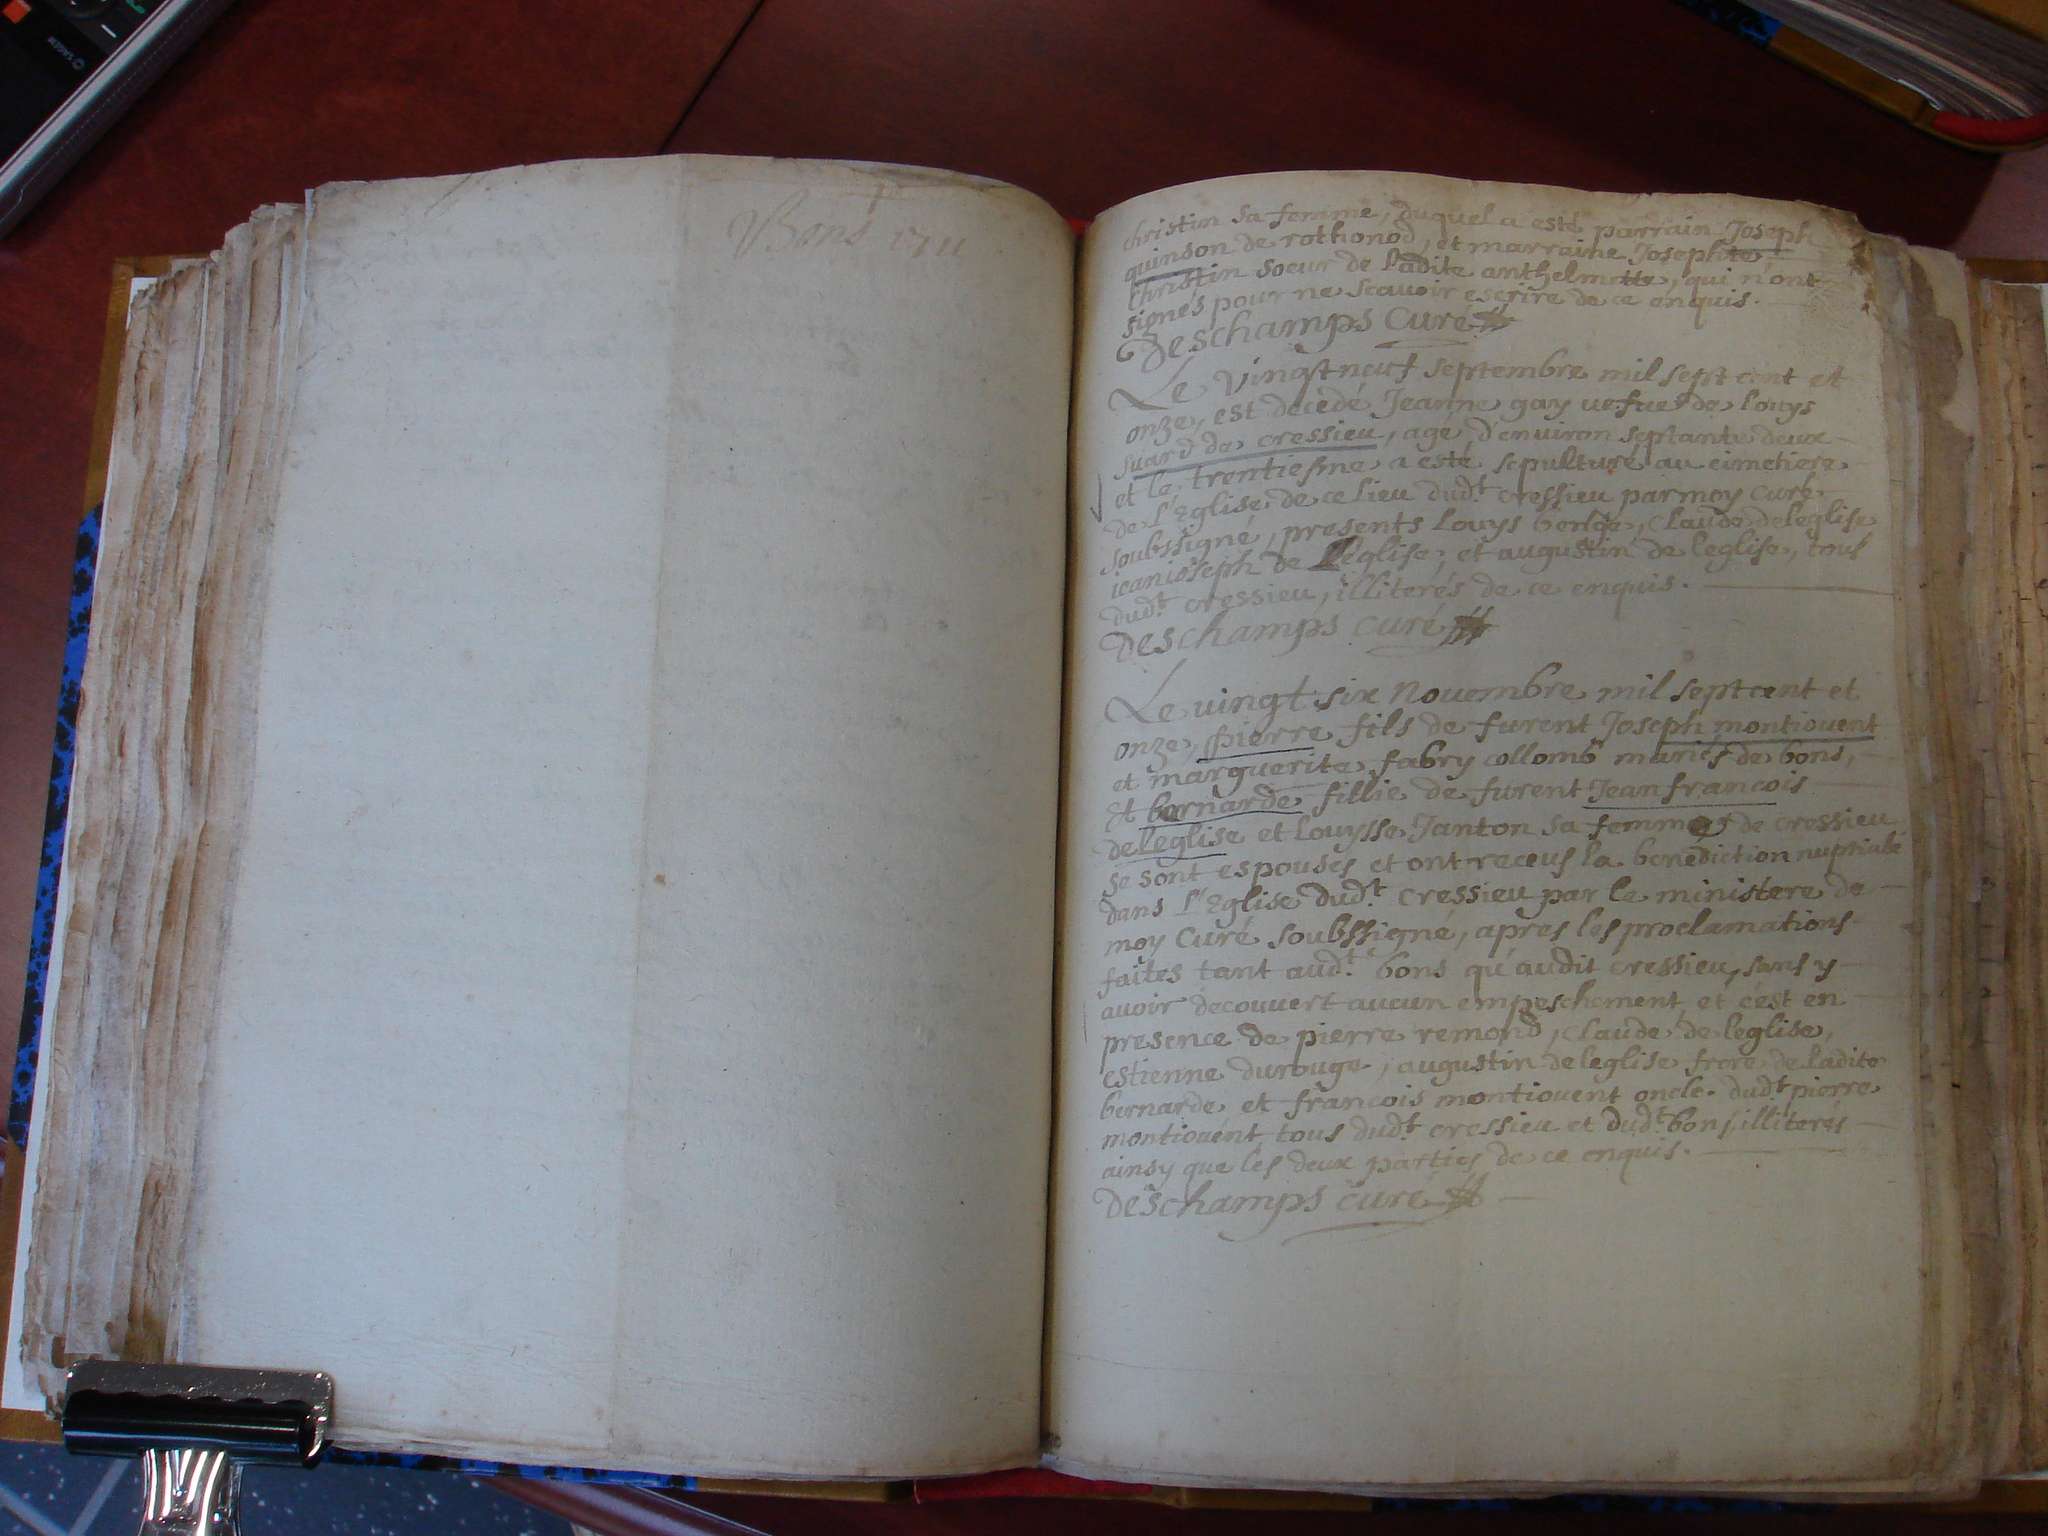 Bons 1711
christin sa femme, duquel a esté parrain Joseph
quinson de rothonod, et marraine Josephte
christin soeur de ladite anthelmette, qui n'ont
signés pour ne scavoir escrire de ce enquis.
Deschamps Curé
Le vingt neuf septembre mil sept cent et
onze, est decedé Jeanne gay vefue de louys
suard de cressieu, age d'environ septante deux
et le trentiesme a esté sepulturé au cimetiere
de l'Eglise de ce lieu dud.t cressieu par moy curé
soubssigné, presents louys berlie, Claude deleglise
ieanioseph de leglise, et augustin de leglise, tous
dud.t cressieu, illiterés de ce enquis.
Deschamps curé
Le vingt six Novembre mil sept cent et
onze, pierre fils de furent Joseph montiouent
et marguerite fabry collomb mariés de bons,
et bernarde fillie de furent Jean francois
deleglise et louysse Janton sa femme de cressieu
se sont espousés et ont receus la benediction nuptiale
dans l'Eglise dud.t cressieu par le ministere de
moy Curé soubssigné, apres les proclamations
faites tant aud.t bons qu'audit cressieu, sans y
avoir decouvert aucun empeschement, et c'est en
presence de pierre remond, Claude de leglise,
estienne durouge, augustin deleglise frere de ladite
bernarde et francois montiouent oncle dud.t pierre
montiouent tous dud.t cressieu et dud.t bons, illiterés
ainsy que les deux parties de ce enquis.
Deschamps curé